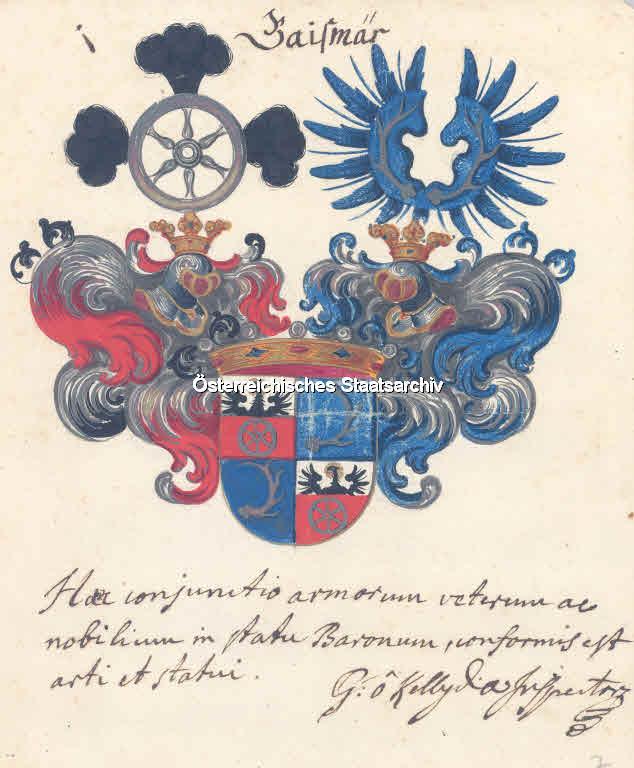 Gaismär
Österreichisches Staatsarchiv
Hæc conjunctio armorum veterum ac
nobilium in statu Baronum, conformis est
arti et statui.
G: ô Kelly d'a Inspector
7